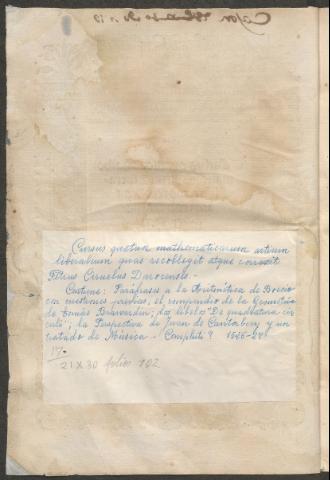 Cursus quatuor mathematicarum artium
liberalium quas recollegit atque correxit
Petrus Ciruelus Darocensis.-
Contiene: Paráfrasis a la Aritmética de Boecio
con cuestiones previas; el compendio de la Geometría
de Tomás Bravardin; dos libelos "De quadratura cir
culi"; la Perspectiva de Juan de Cantorbery y un
tratado de Música. - Compluti?
21 X 30 folios 102